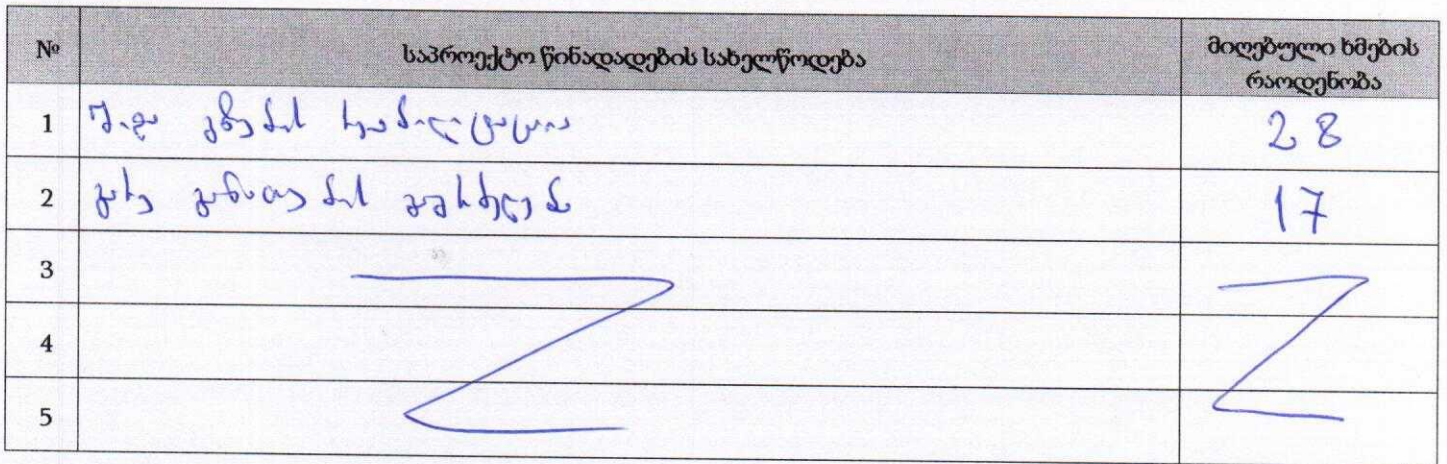 № საპროექტო წინადადების სახელწოდება მიღებული ხმების რაოდენობა
1 შიდა გზების რეაბილიტაცია 28
2 გარე განათების 17
3
4
5